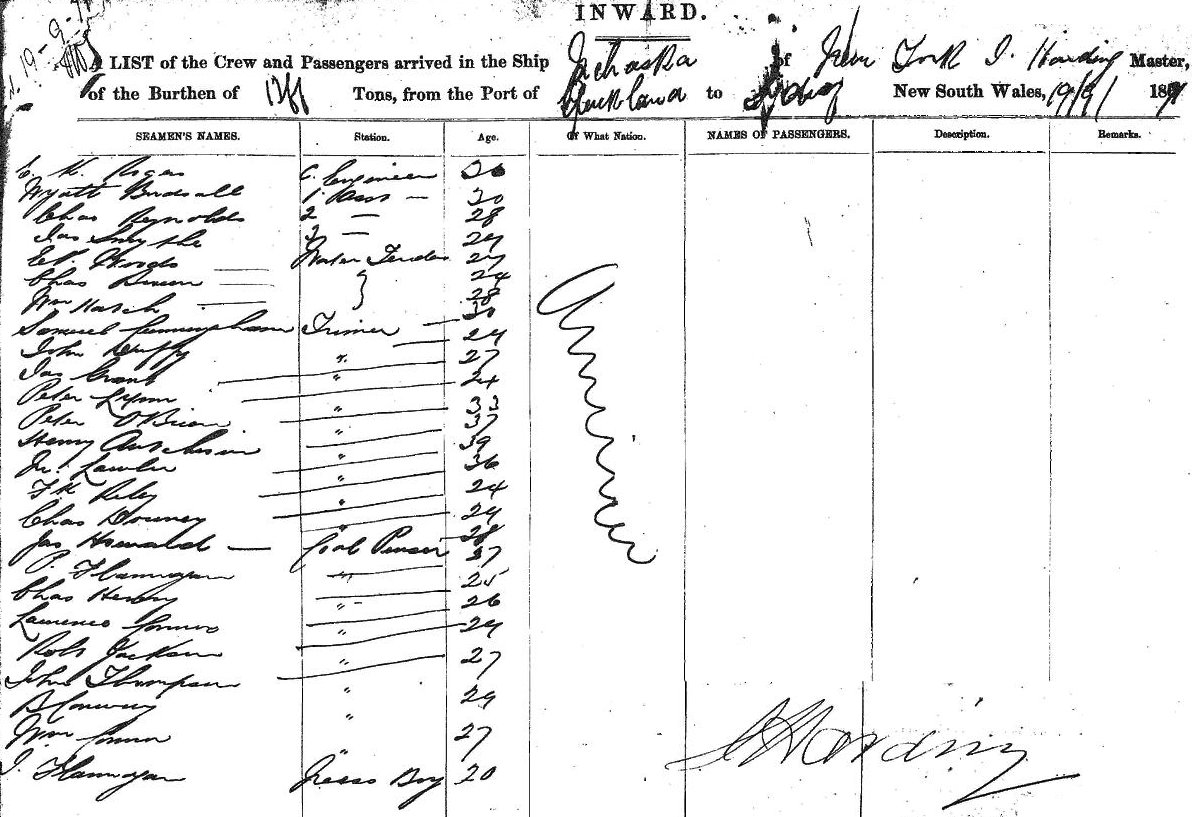 19-9-
INWARD.
A LIST of the Crew and Passengers arrived in the Ship of New York J. Harding Master,
of the Burthen of Tons, from the Port of Auckland to Sydney New South Wales, 19/9/ 189
SEAMEN'S NAMES. Station. Age. Of What Nation. NAMES OF PASSENGERS. Description. Remarks.
C. K. Rogers C. Engineer
Wyatt Birdsall 1. Ass — 30
Chas Reynolds 2 — 28
Jas Smythe 3 —
Ed. Woods Water Tender 27
Chas 24
Wm Hatch 28
Samuel Cunningham Trimer 30
John Duffy 24
Jas Grant " 27
Peter Lynn " 24
Peter O'Brien " 33
Henry " 37
Jno. Lawler " 39
F. K. Riley " 36
Chas Downey " 24
Jas Howald — Coal Passer 28
P. Flannagan " 37
Chas Henry " 25
Lawrence Connors " 26
Robt Jackson " 29
John Thompson " 27
B Conway " 29
Wm Connor " 27
J. Flannagan Mess Boy 20
J Harding